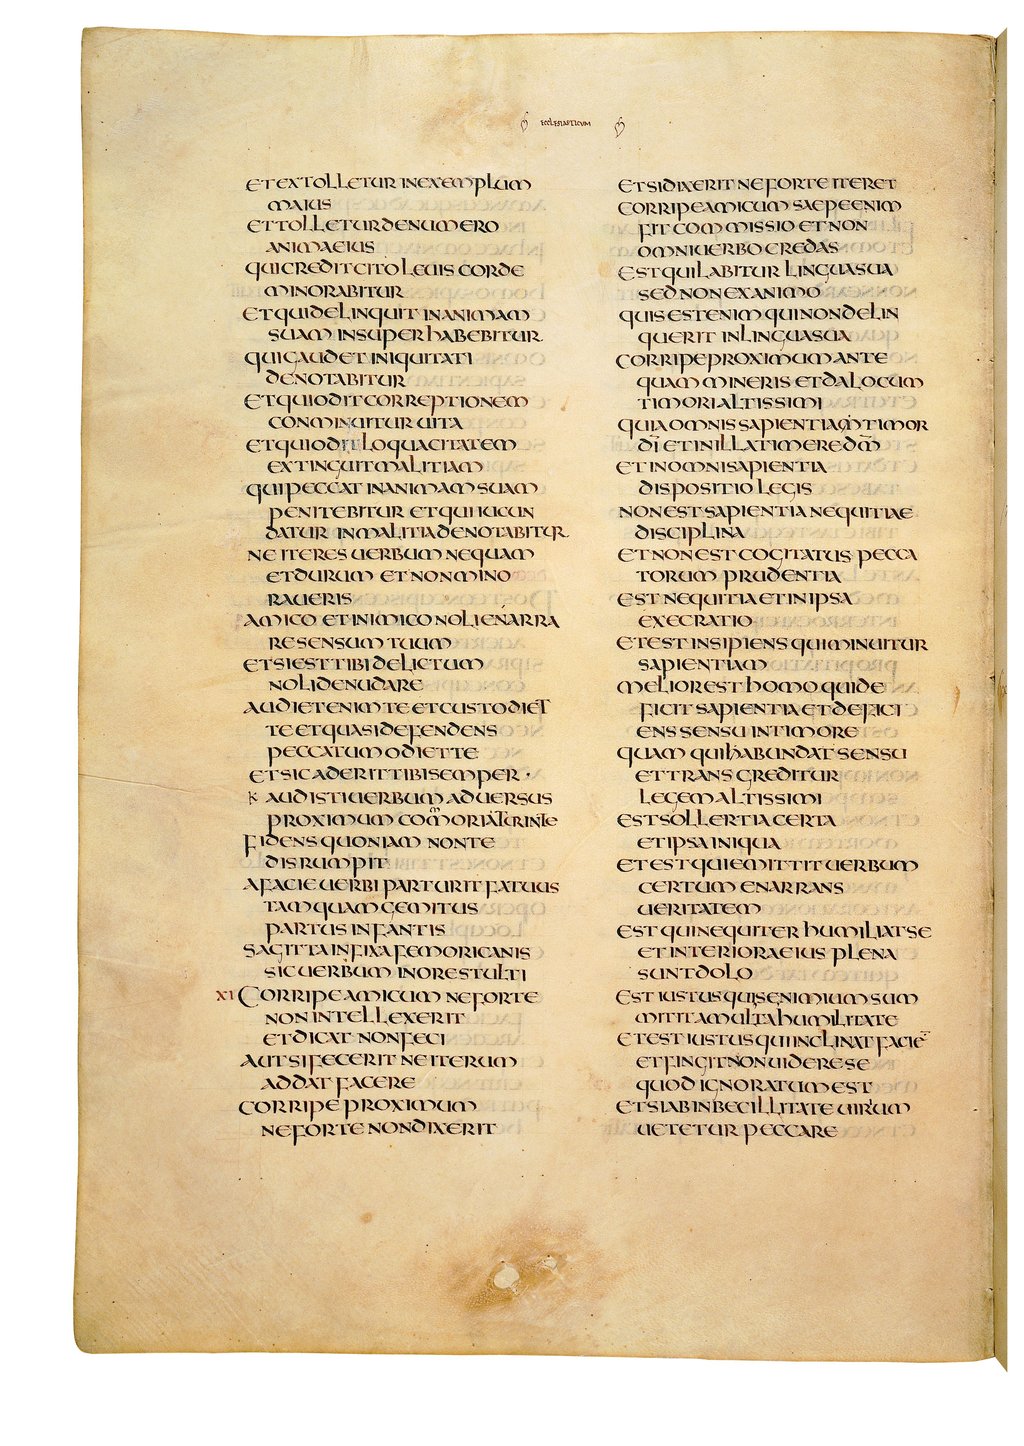 ECCLESIASTICUM
ETEXTOLLETUR INEXEMPLUM
MAIUS
ETTOLLETURDENUMERO
ANIMAEIUS
QUICREDITCITOLEUIS CORDE
MINORABITUR
ETQUIDELINQUIT INANIMAM
SUAM INSUPERHABEBITUR
QUIGAUDET INIQUITATI
DENOTABITUR
ETQUIODITCORREPTIONEM
CONMINUITUR UITA
ETQUIODIT LOQUACITATEM
EXTINGUITMALITIAM
QUIPECCAT INANIMAMSUAM
PENITEBITUR ETQUIIUCUN
DATUR INMALITIADENOTABITUR
NE ITERES UERBUM NEQUAM
ETDURUM ETNONMINO
RAUERIS
AMICO ETINIMICONOLIENARRA
RESENSUMTUUM
ETSIESTTIBIDELICTUM
NOLIDENUDARE
AUDIETENIMTE ETCUSTODIET
TE ETQUASIDEFENDENS
PECCATUM ODIETTE
ETSICADERITTIBISEMPER
K AUDISTIUERBUM ADUERSUS
PROXIMUM COMORIATURINTE
FIDENSQUONIAM NONTE
DISRUMPIT
AFACIE UERBI PARTURIT FATUUS
TAMQUAMGEMITUS
PARTUS INFANTIS
SAGITTAINFIXAFEMORICANIS
SICUERBUM INORESTULTI
XI CORRIPEAMICUM NEFORTE
NONINTELLEXERIT
ETDICAT NONFECI
AUTSIFECERIT NEITERUM
ADDAT FACERE
CORRIPE PROXIMUM
NEFORTE NONDIXERIT
ETSIDIXERIT NEFORTE ITERET
CORRIPEAMICUM SAEPEENIM
FIT COMMISSIO ETNON
OMNIUERBO CREDAS
ESTQUILABITUR LINGUASUA
SED NONEXANIMO
QUISESTENIM QUINONDELIN
QUERIT INLINGUASUA
CORRIPEPROXIMUMANTE
QUAM MINERIS ETDALOCUM
TIMORIALTISSIMI
QUIAOMNISSAPIENTIA TIMOR
DI ETINILLATIMEREDM
ETINOMNISAPIENTIA
DISPOSITIO LEGIS
NONEST SAPIENTIA NEQUITIAE
DISCIPLINA
ETNONEST COGITATUS PECCA
TORUM PRUDENTIA
EST NEQUITIAETINIPSA
EXECRATIO
ETEST INSIPIENS QUIMINUITUR
SAPIENTIAM
MELIOREST HOMO QUIDE
FICIT SAPIENTIA ETDEFICI
ENS SENSU INTIMORE
QUAM QUIHABUNDAT SENSU
ETTRANSGREDITUR
LEGEMALTISSIMI
ESTSOLLERTIACERTA
ETIPSAINIQUA
ETESTQUIEMITTITUERBUM
CERTUM ENARRANS
UERITATEM
ESTQUINEQUITER HUMILIATSE
ETINTERIORAEIUS PLENA
SUNTDOLO
EST IUSTUS QUISENIMIUMSUM
MITTITAMULTAHUMILITATE
ETEST IUSTUS QUIINCLINAT FACIE
ETFINGITNONUIDERESE
QUODIGNORATUMEST
ETSIABINBECILLITATE UIRIUM
UETETUR PECCARE